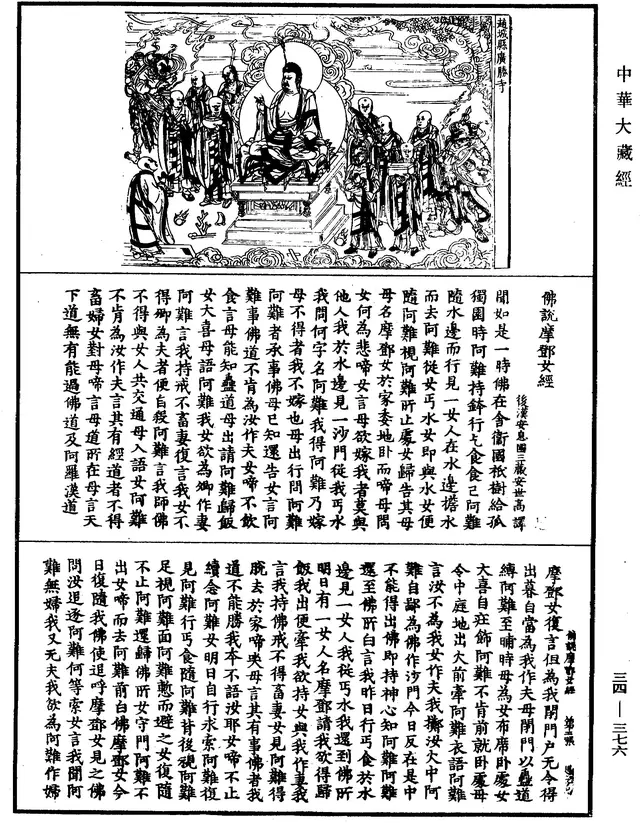 中華大藏經
趙城縣廣勝寺
佛說摩鄧女經
後漢安息國三藏安世高譯
聞如是一時佛在舍衞國祇樹給孤
獨園時阿難持鉢行乞食食已阿難
隨水邊而行見一女人在水邊擔水
而去阿難從女丐水女即與水女便
隨阿難視阿難所止處女歸告其母
母名摩鄧女於家委地卧而啼母問
女何為悲啼女言母欲嫁我者莫與
他人我於水邊見一沙門從我丐水
我問何字名阿難我得阿難乃嫁
母不得者我不嫁也母出行問阿難
阿難者承事佛母已知還告女言阿
難事佛道不肯為汝作夫女啼不飲
食言母能知蠱道母出請阿難歸飯
女大喜母語阿難我女欲為卿作妻
阿難言我持戒不畜妻復言我女不
得卿為夫者便自殺阿難言我師佛
不得與女人共交通母入語女阿難
不肯為汝作夫言其有經道者不得
畜婦女對母啼言母道所在母言天
下道無有能過佛道及阿羅漢道
摩鄧女復言但為我閉門戶无令得
出暮自當為我作夫母閉門以蠱道
縛阿難至晡時母為女布席卧處女
大喜自莊飾阿難不肯前就卧處母
令中庭地出火前牽阿難衣語阿難
言汝不為我女作夫我擲汝火中阿
難自鄙為佛作沙門今日反在是中
不能得出佛即持神心知阿難阿難
還至佛所白言我昨日行丐食於水
邊見一女人我從丐水我還到佛所
明日有一女人名摩鄧請我欲得歸
飯我出便牽我欲持女與我作妻我
言我持佛戒不得畜妻女見阿難得
脫去於家啼哭母言其有事佛者我
道不能勝我本不語汝耶女啼不止
續念阿難女明日自行求索阿難復
見阿難行丐食隨阿難背後視阿難
足視阿難面阿難慙而避之女復隨
不止阿難還歸佛所女守門阿難不
出女啼而去阿難前白佛摩鄧女今
日復隨我佛使追呼摩鄧女見之佛
問汝追逐阿難何等索女言我聞阿
難無婦我又无夫我欲為阿難作婦
佛說摩鄧女經
三四—三七六